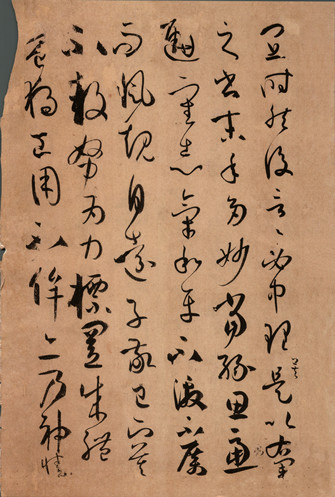 宜時然後言〻必中理矣是以右軍
之書末年多妙當緣思慮
通審志氣和平不激不厲
而風規自遠子敬已下莫
不鼓努為力標置成體
豈獨工用不侔亦乃神情